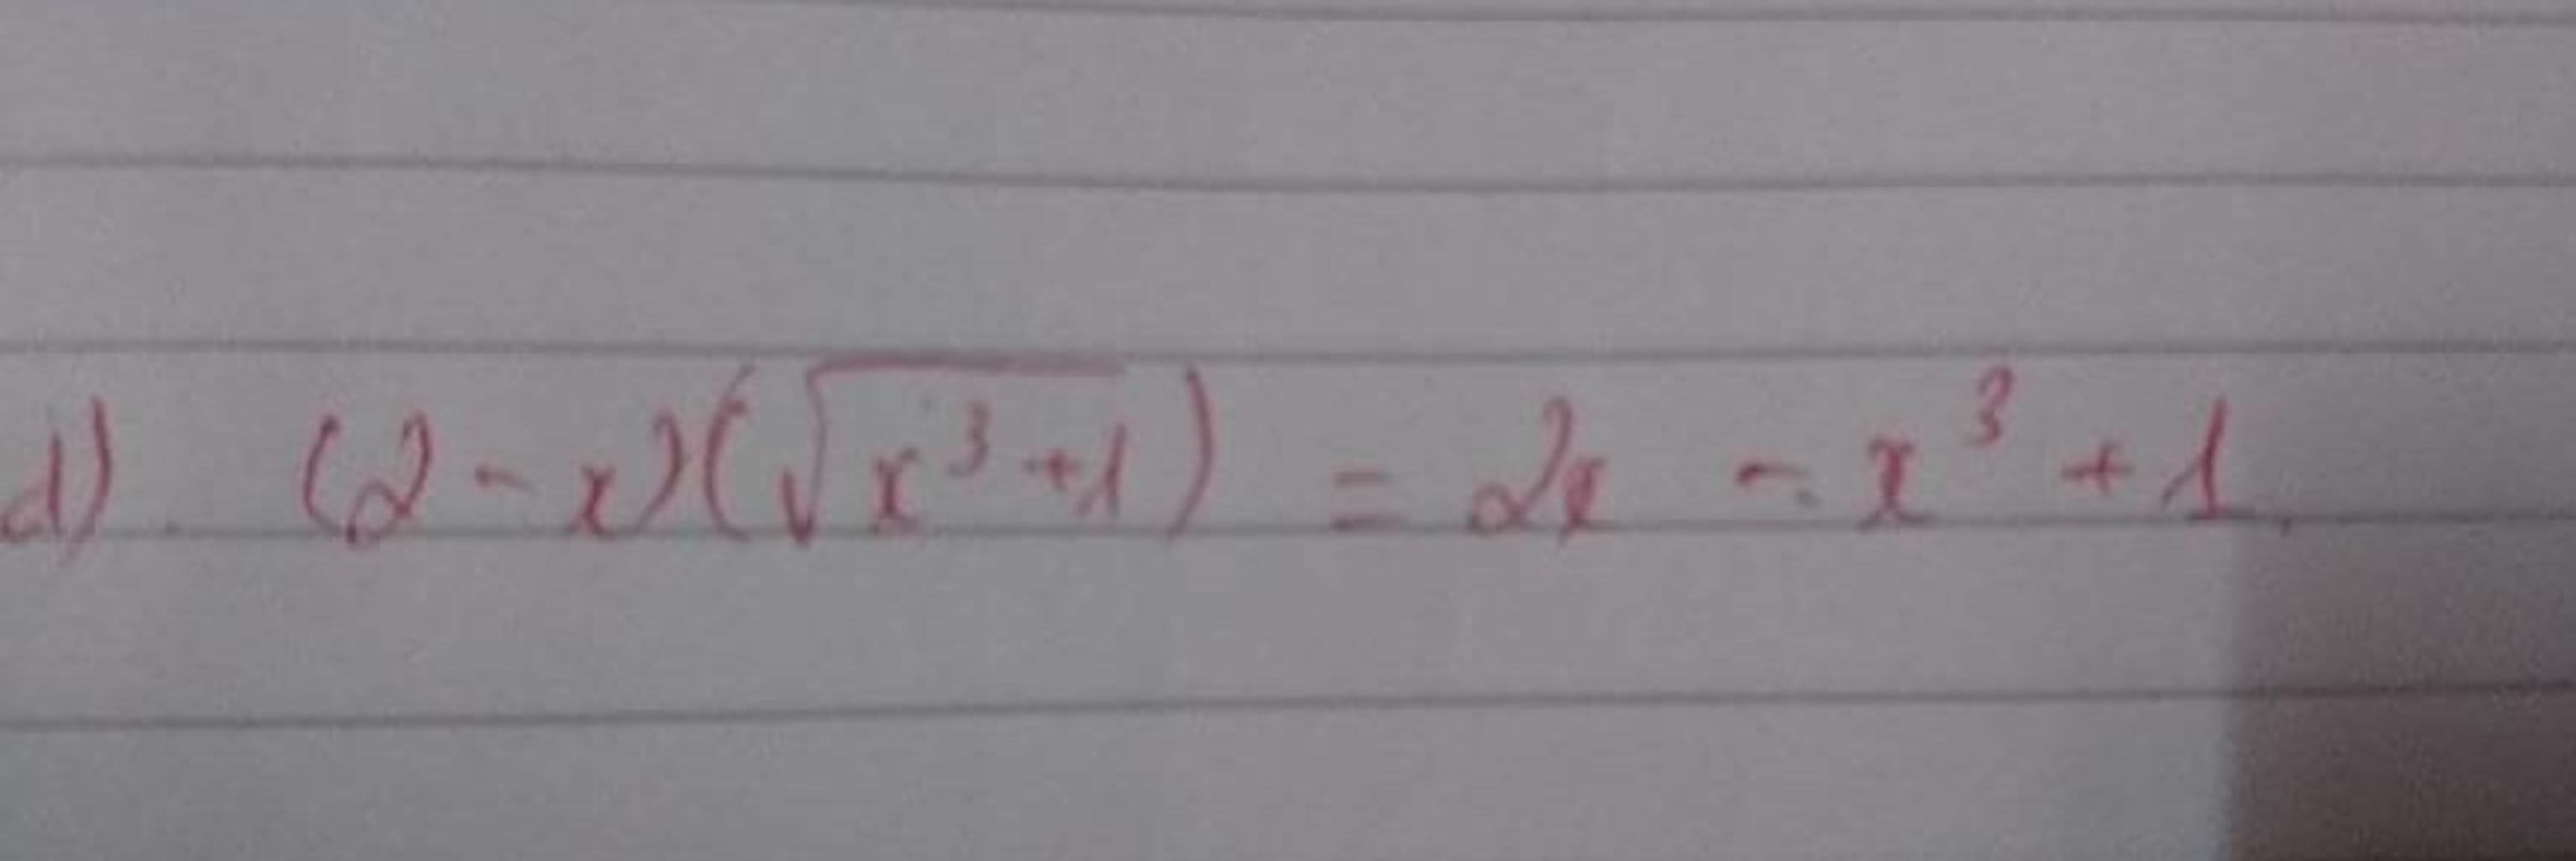 d) (2 - x)(√(x³ + 1)) = 2x - x³ + 1